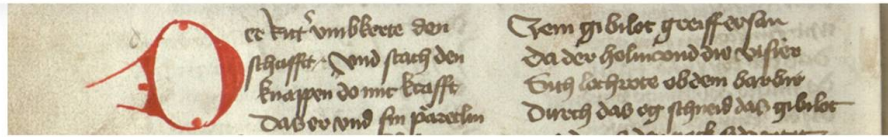 Der Ritt' vmbkerte den
schafft · Vnd stach den
knappen do mit krafft
Das er vnd sin päretlin
Zem gibilot greiff er san
Da der helm vnd die visier
Sich lochrote ob dem barbier
Durch das og schneid das gibilot